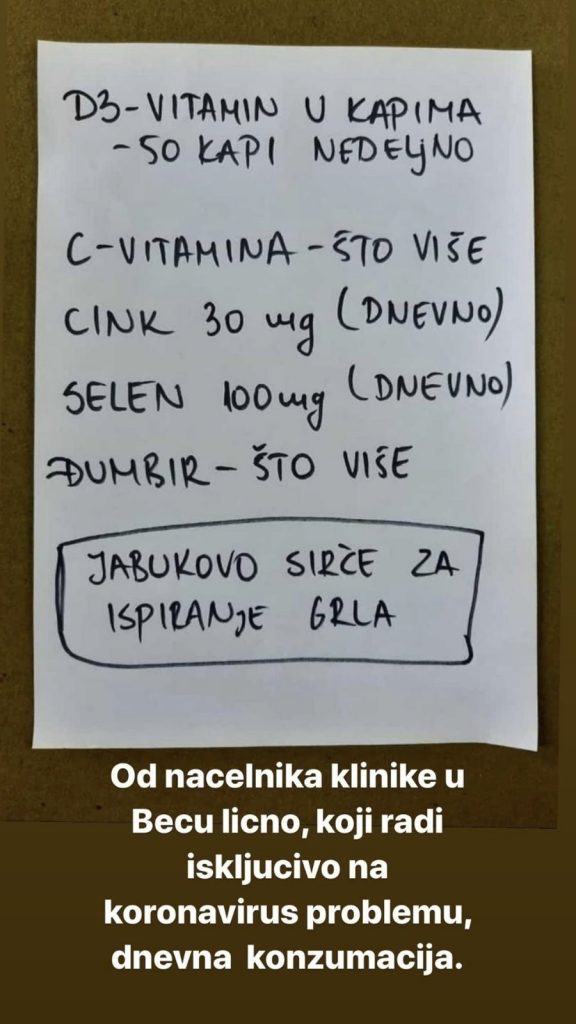 D3-VITAMIN U KAPIMA
-50 KAPI NEDELJNO
C-VITAMINA - ŠTO VIŠE
CINK 30 mg (DNEVNO)
SELEN 100 mg (DNEVNO)
ĐUMBIR - ŠTO VIŠE
JABUKOVO SIRĆE ZA
ISPIRANJE GRLA
Od nacelnika klinike u
Becu licno, koji radi
iskljucivo na
koronavirus problemu,
dnevna konzumacija.